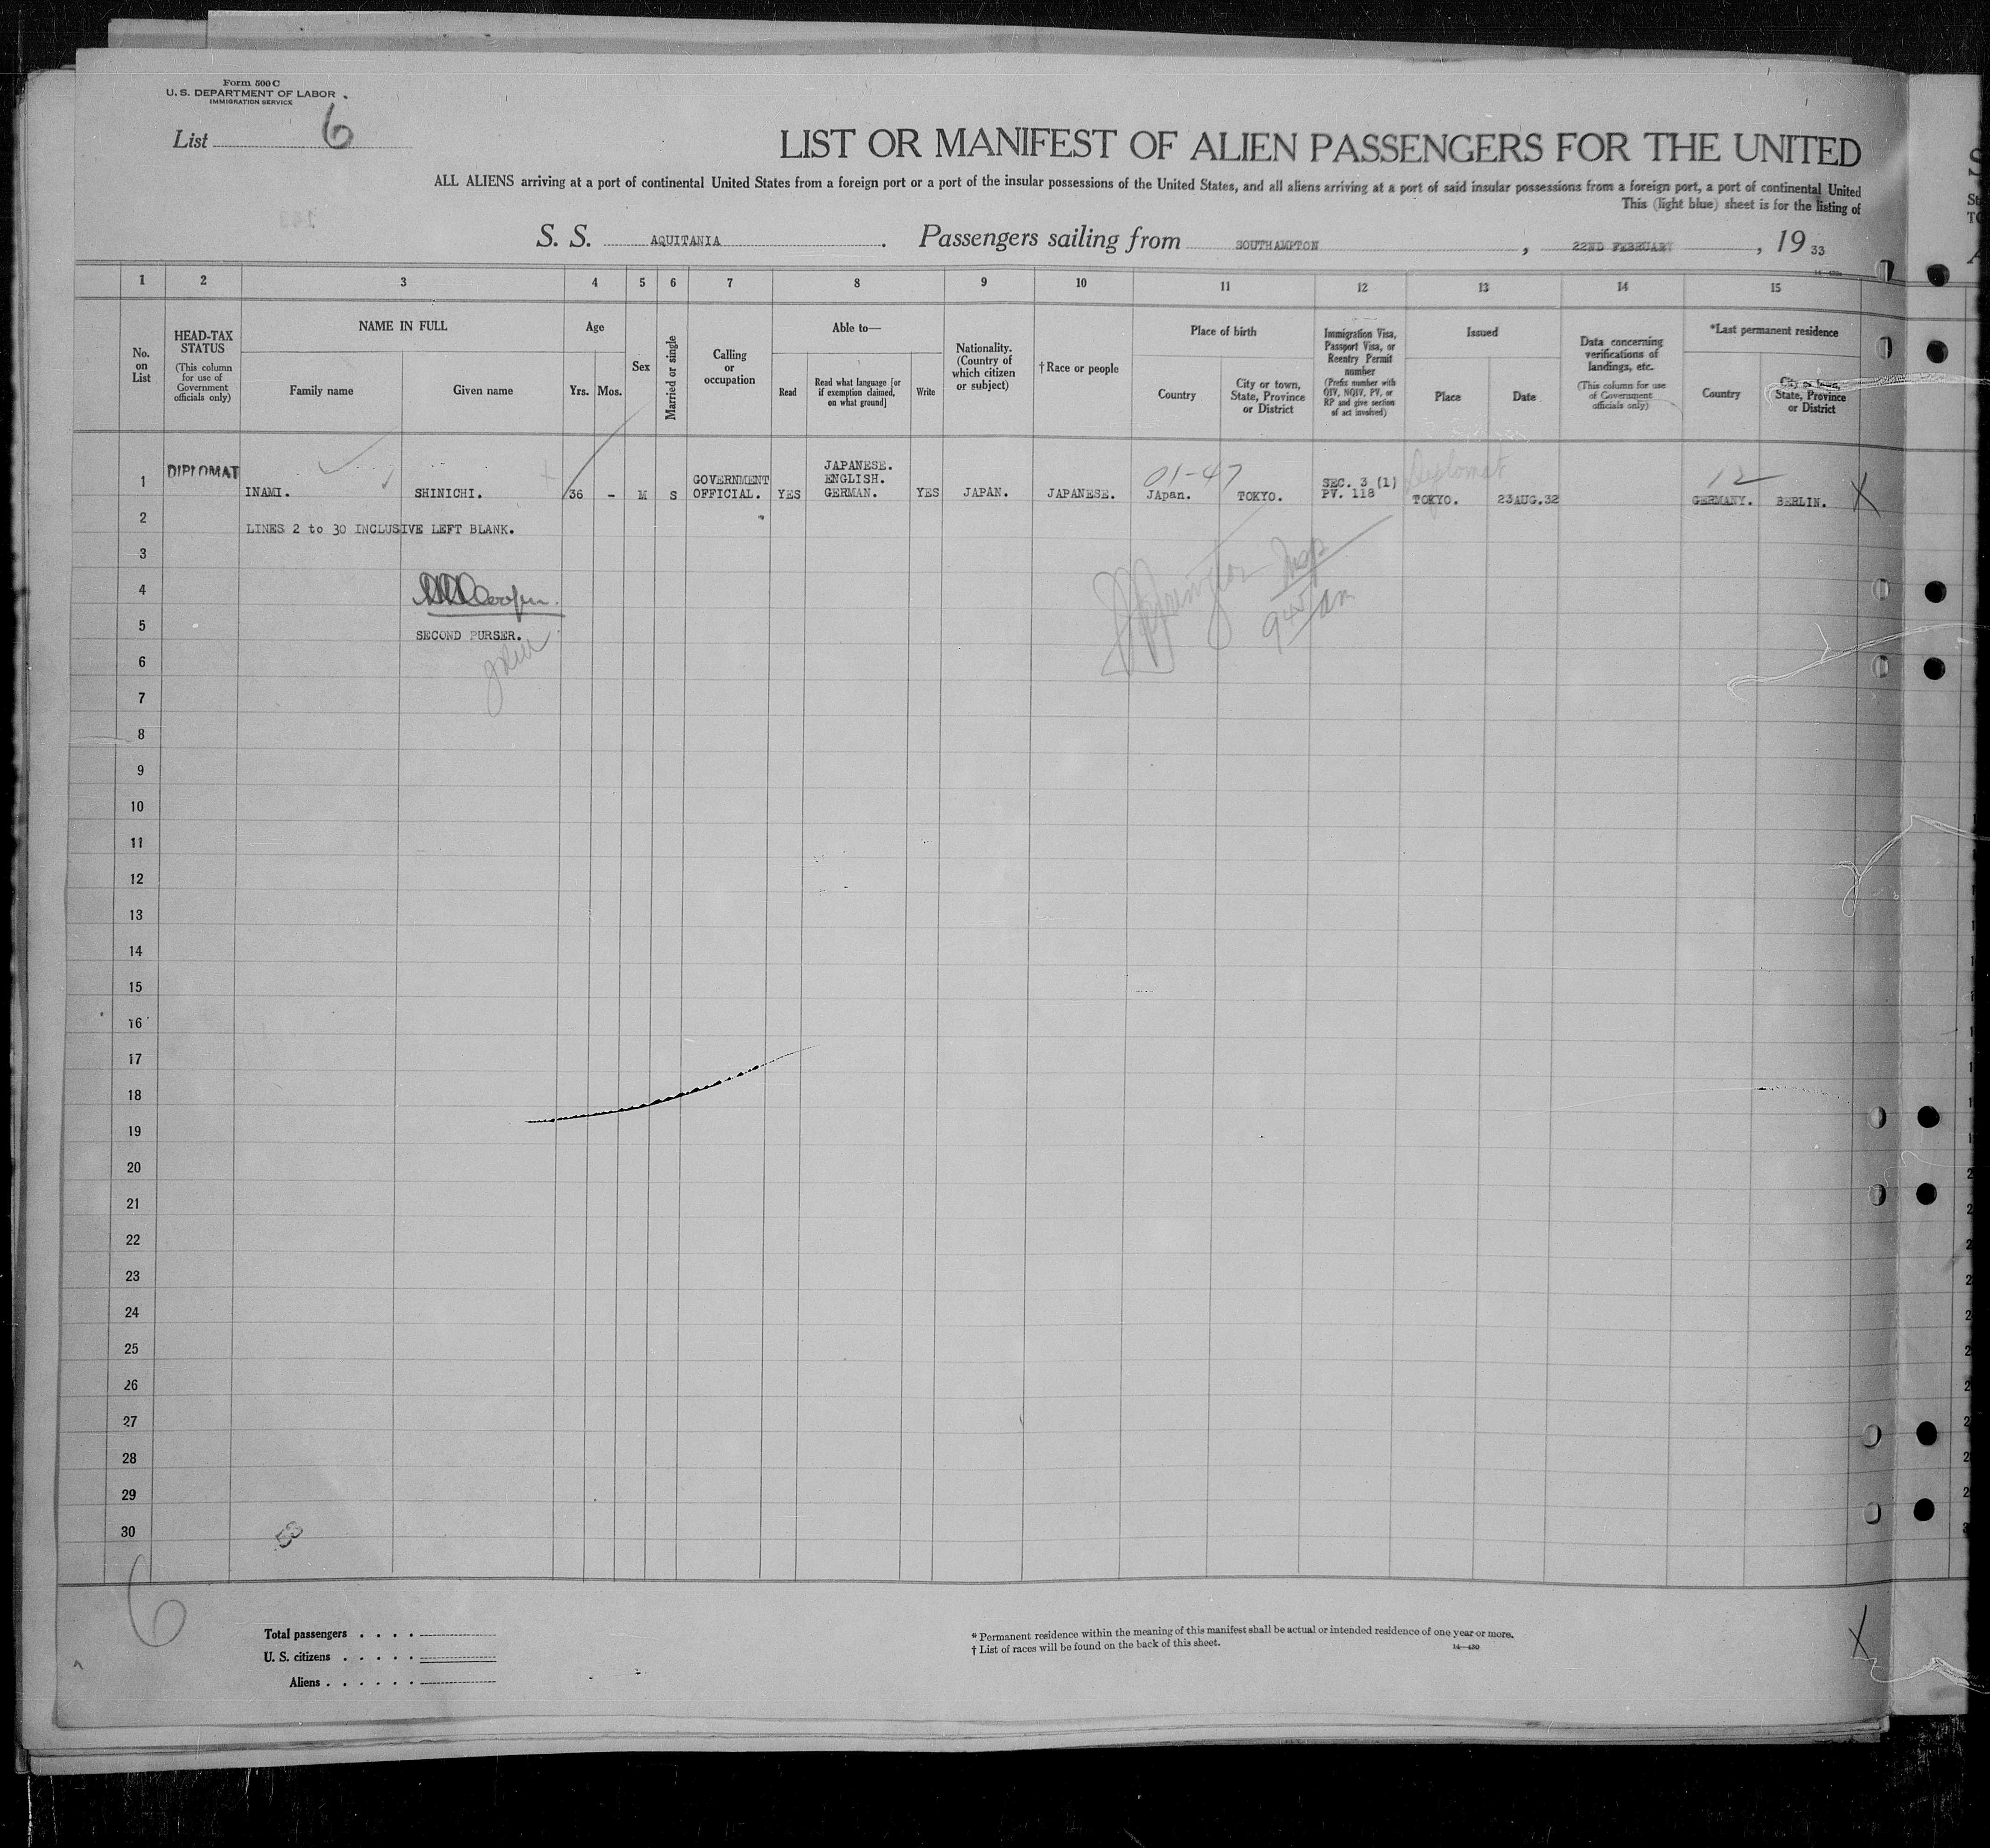 Form 500 C
U. S. DEPARTMENT OF LABOR
IMMIGRATION SERVICE
List 6
LIST OR MANIFEST OF ALIEN PASSENGERS FOR THE UNITED
ALL ALIENS arriving at a port of continental United States from a foreign port or a port of the insular possessions of the United States, and all aliens arriving at a port of said insular possessions from a foreign port, a port of continental United
This (light blue) sheet is for the listing of
S. S. AQUITANIA. Passengers sailing from SOUTHAMPTON, 22ND FEBRUARY, 19 33
1 2 3 4 5 6 7 8 9 10 11 12 13 14 15
No. on List
HEAD-TAX STATUS (This column for use of Government officials only)
NAME IN FULL
Family name
Given name
Age
Yrs.
Mos.
Sex
Married or single
Calling or occupation
Able to—
Read
Read what language [or if exemption claimed, on what ground]
Write
Nationality. (Country of which citizen or subject)
† Race or people
Place of birth
Country
City or town, State, Province or District
Immigration Visa, Passport Visa, or Reentry Permit number (Prefix number with QIV, NQIV, PV, or RP and give section of act involved)
Issued
Place
Date
Data concerning verifications of landings, etc. (This column for use of Government officials only)
*Last permanent residence
Country
City or town, State, Province or District
1 DIPLOMAT INAMI. SHINICHI. 36 - M S GOVERNMENT OFFICIAL. YES JAPANESE. ENGLISH. GERMAN. YES JAPAN. JAPANESE. 01-47 JApan. TOKYO. SEC. 3 (1) PV. 118 Diplomat TOKYO. 23AUG.32 12 GERMANY. BERLIN. X
2 LINES 2 to 30 INCLUSIVE LEFT BLANK.
3
4
5 SECOND PURSER.
6
7
8
9
10
11
12
13
14
15
16
17
18
19
20
21
22
23
24
25
26
27
28
29
30
6
Total passengers . . . .
U. S. citizens . . . . .
Aliens . . . . . .
* Permanent residence within the meaning of this manifest shall be actual or intended residence of one year or more.
† List of races will be found on the back of this sheet.
14—430
X